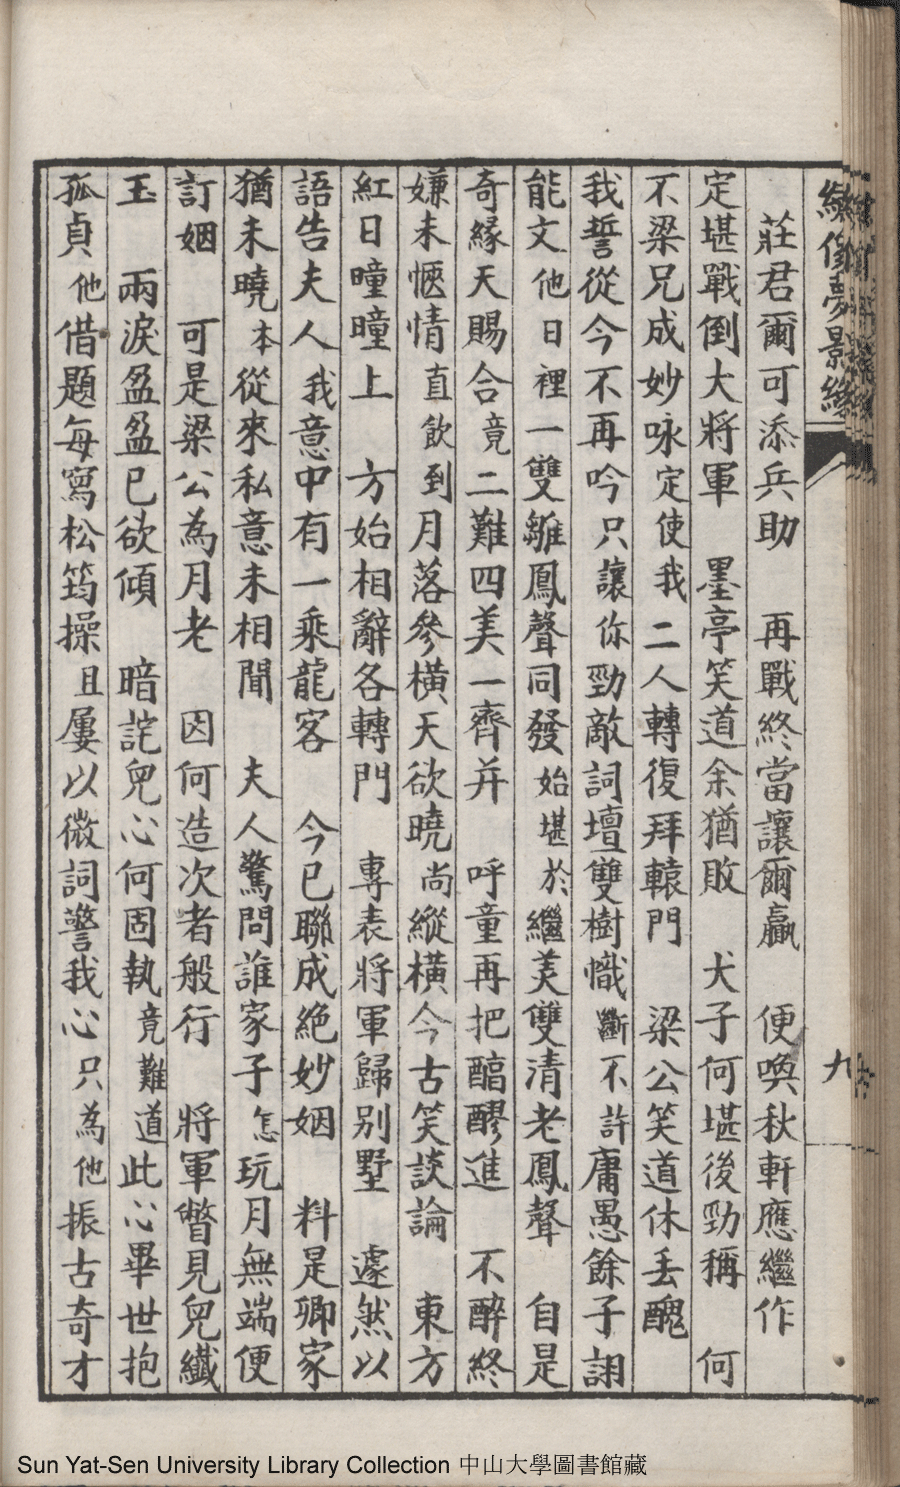 繡像夢影緣
九
莊君爾可添兵助　再戰終當讓爾贏　便喚秋軒應繼作
定堪戰倒大將軍　墨亭笑道余猶敗　犬子何堪後勁稱　何
不梁兄成妙咏定使我二人轉復拜轅門　梁公笑道休丟醜
我誓從今不再吟只讓你勁敵詞壇雙樹幟斷不許庸愚餘子詡
能文他日裡一雙雛鳳聲同發始堪於繼美雙清老鳳聲　自是
奇緣天賜合竟二難四美一齊并　呼童再把醕醪進　不醉終
嫌未愜情直飲到月落參橫天欲曉尚縱橫今古笑談論　東方
紅日曈曈上　方始相辭各轉門　專表將軍歸別墅　遽然以
語告夫人我意中有一乘龍客　今已聯成絕妙姻　料是卿家
猶未曉本從來私意未相聞　夫人驚問誰家子怎玩月無端便
訂姻　可是梁公為月老　因何造次者般行　將軍瞥見兒纖
玉　兩淚盈盈已欲傾　暗詫兒心何固執竟難道此心畢世抱
孤貞他借題每寫松筠操且屢以微詞警我心　只為他振古奇才
Sun Yat-Sen University Library Collection 中山大學圖書館藏